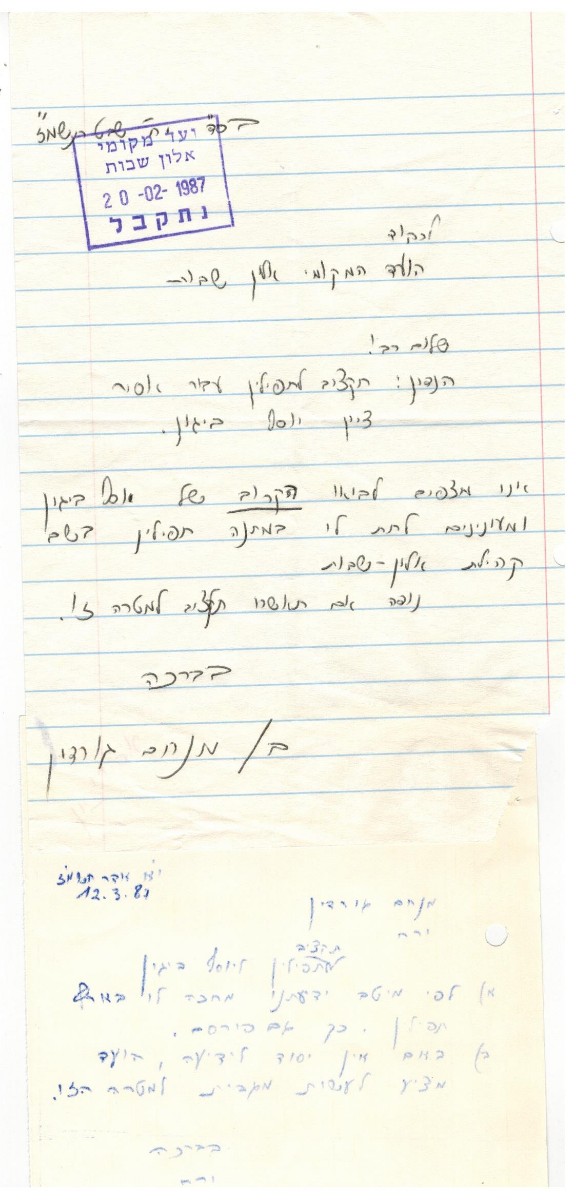 בס"ד שבט תשמ"ז
ועד מקומי
אלון שבות
20-02-1987
נתקבל
לכבוד
הועד המקומי אלון שבות
שלום רב!
הנדון: תקציב לתפילין עבור אסיר
ציון יוסף ביגון.
אנו מצפים לבואו הקרוב של יוסף ביגון
ומעונינים לתת לו במתנה תפילין בשם
קהילת אלון-שבות
נודה אם תאשרו תקציב למטרה זו.
בברכה
מנחם גורדון
אדר תשמ"ז
12.3.87
מנחם גורדון
תקציב
לתפילין ליוסף ביגון
א) לפי מיטב ידיעתי מחכה לו בארץ
תפילין. כך גם פורסם.
ב) באם אין יסוד לידיעה, הועד
מציע לעשות מגבית למטרה הזו.
בברכה